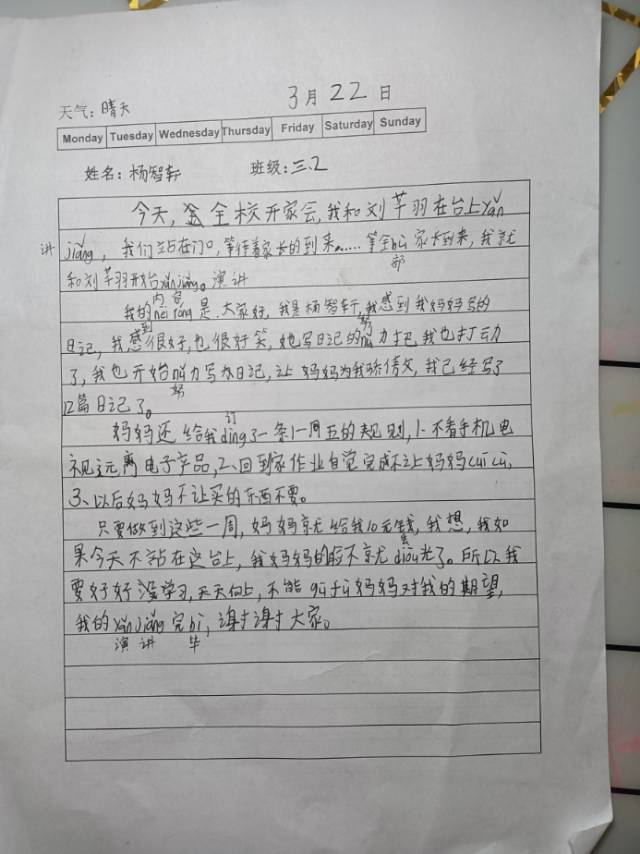 天气: 晴天 3月22日
Monday Tuesday Wednesday Thursday Friday Saturday Sunday
姓名: 杨智轩 班级: 三.2
今天,全校开家会,我和刘芊羽在台上yǎn
讲 jiǎng,我们站在门口,等待着家长的到来……等全bù家长到来,我就
部
和刘芊羽开始yǎnjiǎng。演讲
内容
我的nèi róng是.大家好,我是杨智轩,我感到我妈妈写的
到 努
日记,我感很好,也很好笑,她写日记的nǔ力把我也打动
了,我也开始nǔ力写日记,让妈妈为我骄傲,我已经写了
努
12篇日记了。
订
妈妈还给我dìng了一条1一周五的规则,1.不看手机电
视远离电子产品,2、回到家作业自觉完成不让妈妈cuī cù,
3、以后妈妈不让买的东西不要。
只要做到这些一周,妈妈就给我10元钱,我想,我如
丢
果今天不站在这台上,我妈妈的脸不就diōu光了。所以我
要好好学习,天天向上,不能gū fù妈妈对我的期望,
我的yǎnjiǎng完bì,谢谢大家。
演讲 毕